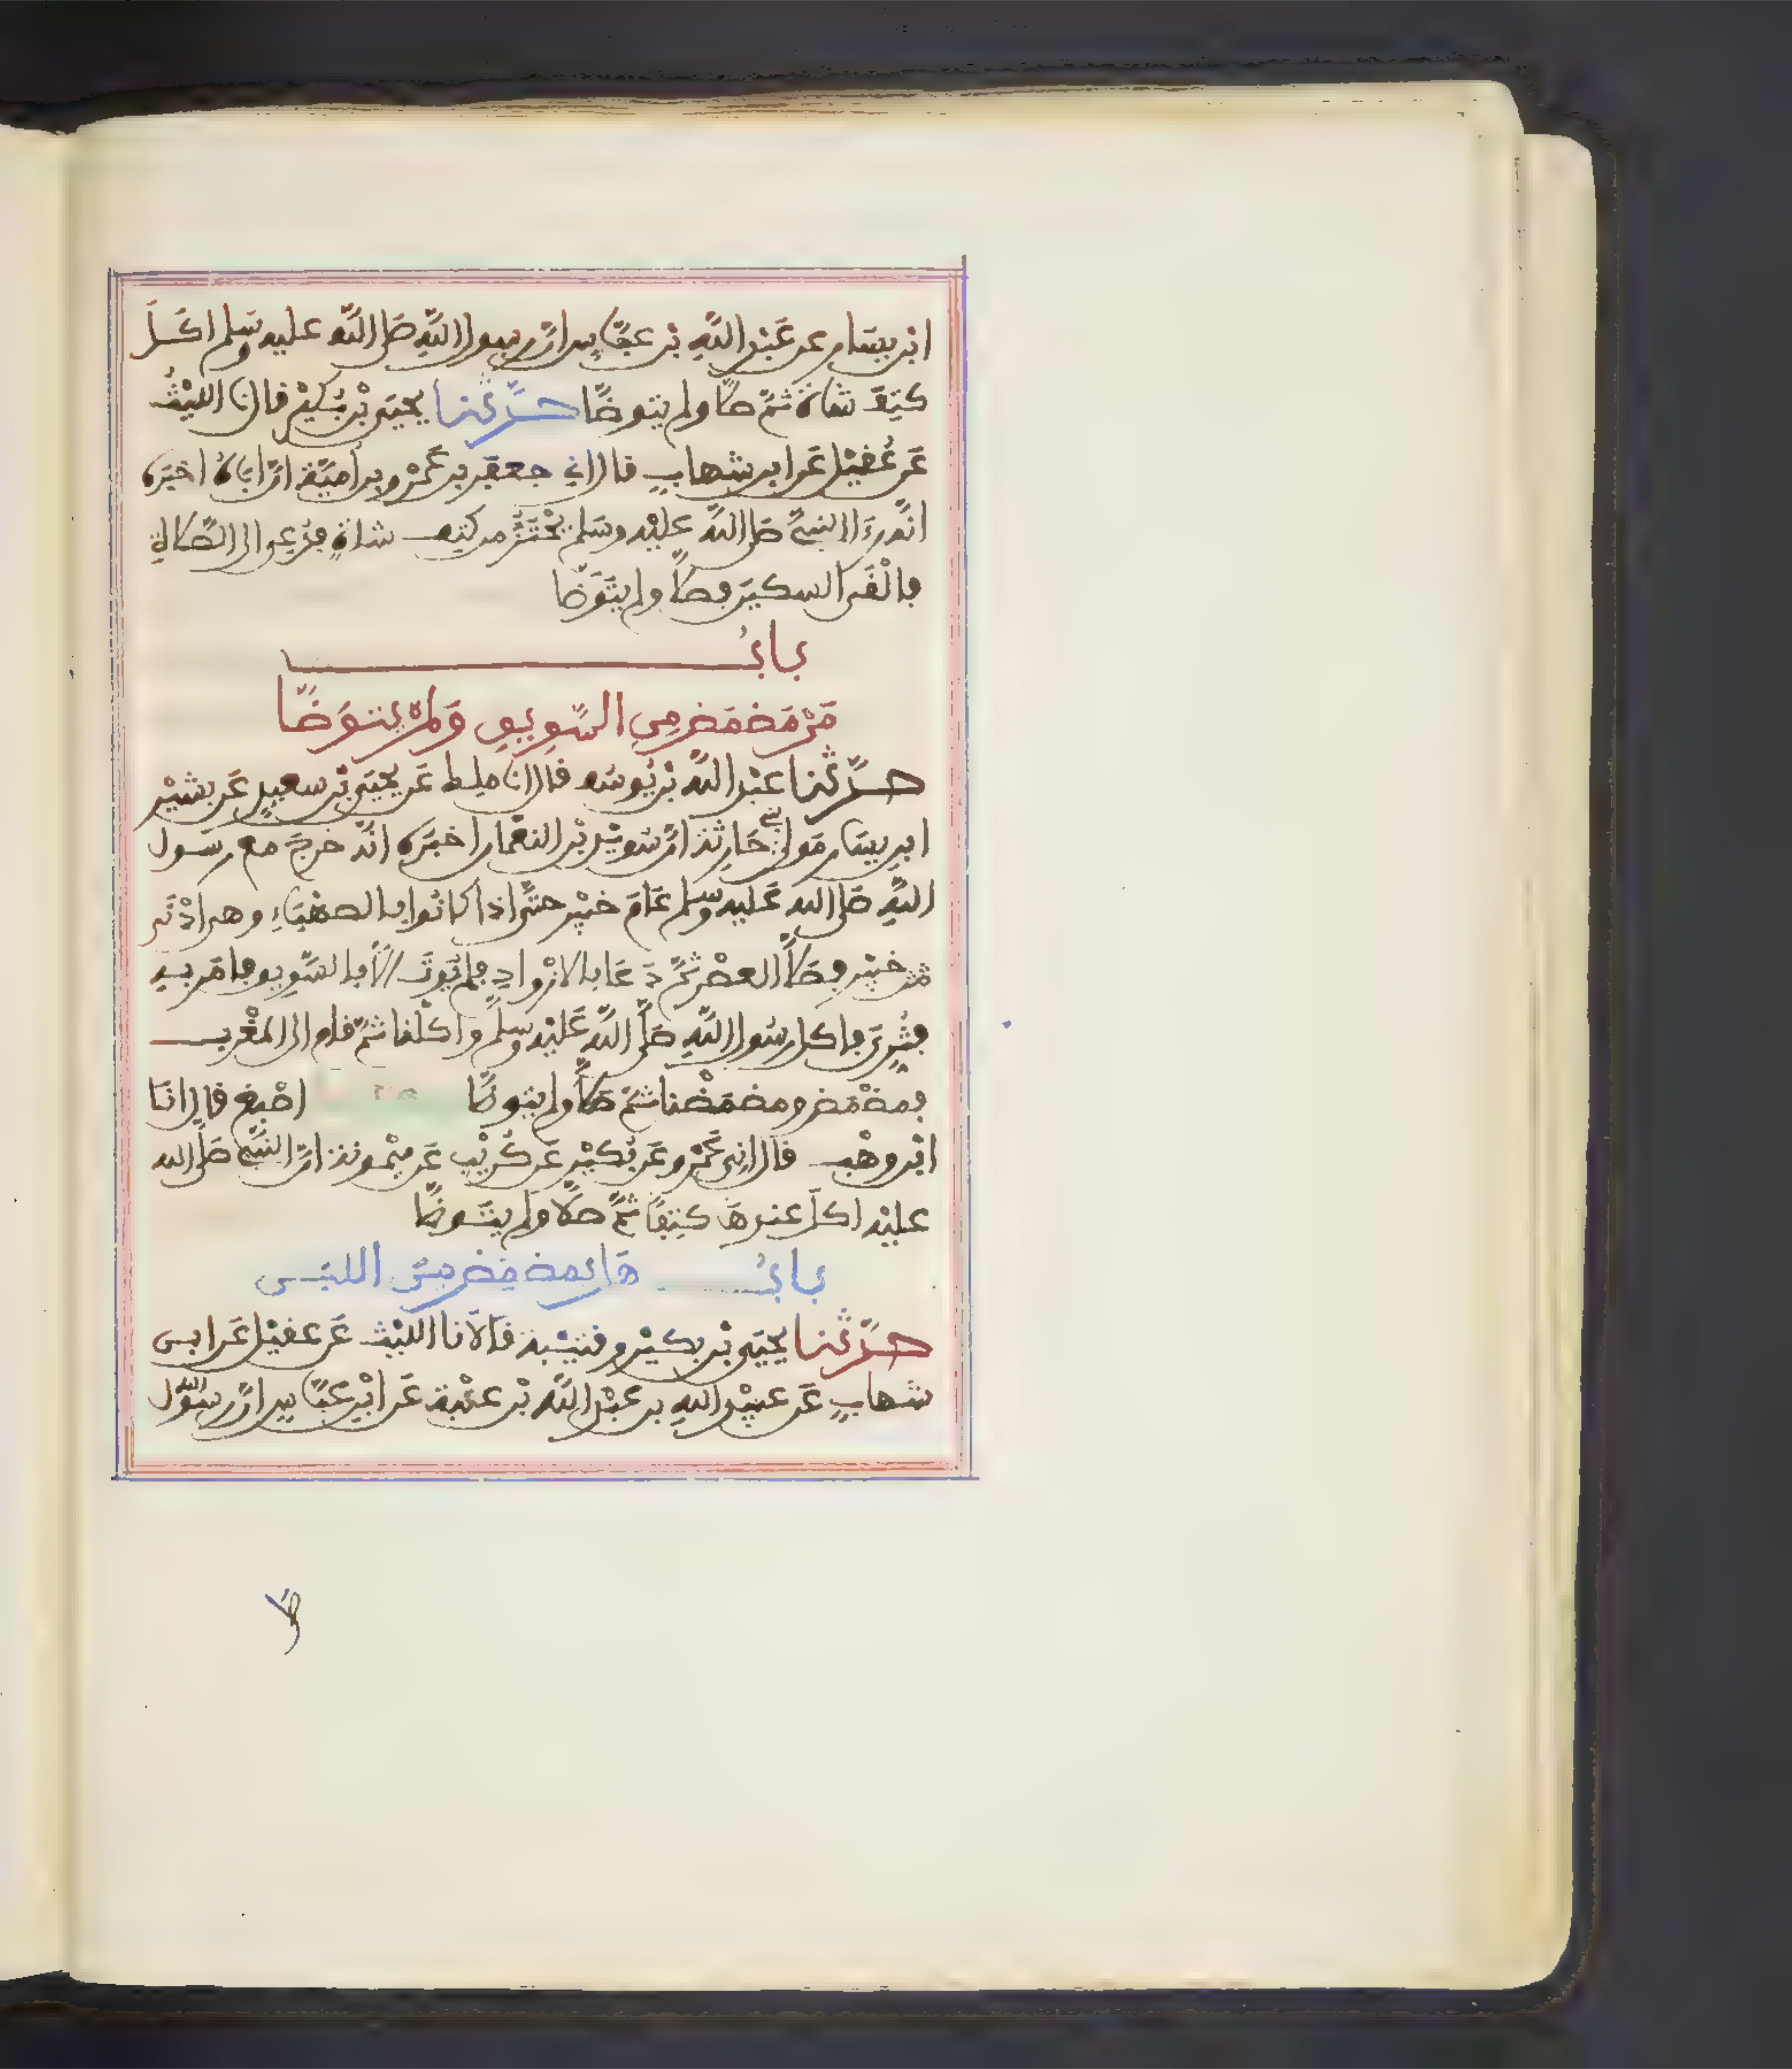 ابن يسار عن عبد الله بن عباس ان رسول الله صلى الله عليه وسلم اكل
كتف شاة ثم صلى ولم يتوضا حدثنا يحيى بن بكير قال نا الليث
عن عقيل عن ابن شهاب قال اني جعفر بن عمرو بن امية ان اباه اخبره
انه رءا النبي صلى الله عليه وسلم يحتز من كتف شاة فدعي الى الصلاة
فالقى السكين فصلى ولم يتوضا
باب
من مضمض من السويق ولم يتوضا
حدثنا عبد الله بن يوسف قال انا ملك عن يحيى بن سعيد عن بشير
ابن يسار مولى بني حارثة ان سويد بن النعمان اخبره انه خرج مع رسول
الله صلى الله عليه وسلم عام خيبر حتى اذا كانوا بالصهباء وهي ادنى
من خيبر فصلى العصر ثم دعا بالازواد فلم يوت الا بالسويق فامر به
فثري فاكل رسول الله صلى الله عليه وسلم واكلنا ثم قام الى المغرب
فمضمض ومضمضنا ثم صلى ولم يتوضا اصبغ قال انا
ابن وهب قال اني عمرو عن بكير عن كريب عن ميمونة ان النبي صلى الله
عليه اكل عندها كتفا ثم صلى ولم يتوضا
باب هل يمضمض من اللبن
حدثنا يحيى بن بكير وقتيبة قالا نا الليث عن عقيل عن ابن
شهاب عن عبيد الله بن عبد الله بن عتبة عن ابن عباس ان رسول الله